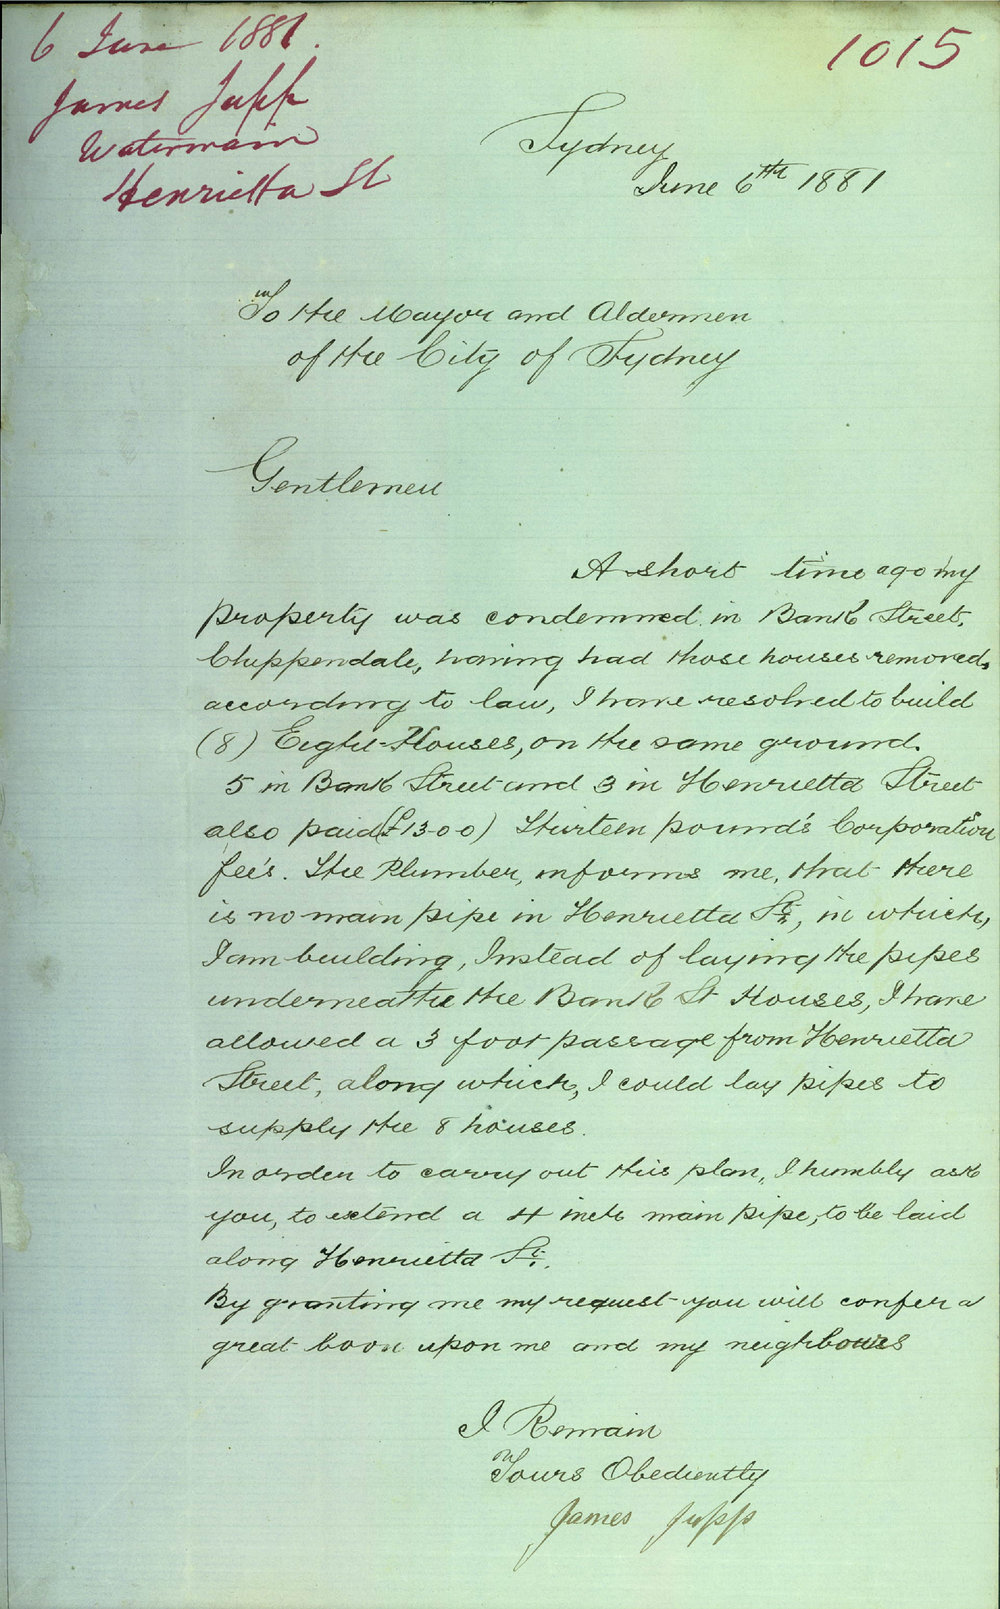 6 June 1881.
James Jupp
Watermain
Henrietta St
1015
Sydney
June 6th 1881
To the Mayor and Aldermen
of the City of Sydney
Gentlemen
A short time ago my
property was condemned in Bank Street,
Chippendale, having had those houses removed,
according to law, I have resolved to build
(8) Eight Houses, on the same ground.
5 in Bank Street and 3 in Henrietta Street
also paid (£13-0-0) Thirteen pound's Corporation
fee's. The Plumber, informs me, that there
is no main pipe in Henrietta St, in which,
I am building, Instead of laying the pipes
underneath the Bank St Houses, I have
allowed a 3 foot passage from Henrietta
Street, along which, I could lay pipes to
supply the 8 houses.
In order to carry out this plan, I humbly ask
you, to extend a 4 inch main pipe, to be laid
along Henrietta St.
By granting me my request you will confer a
great boon upon me and my neighbours
I Remain
Yours Obediently
James Jupp